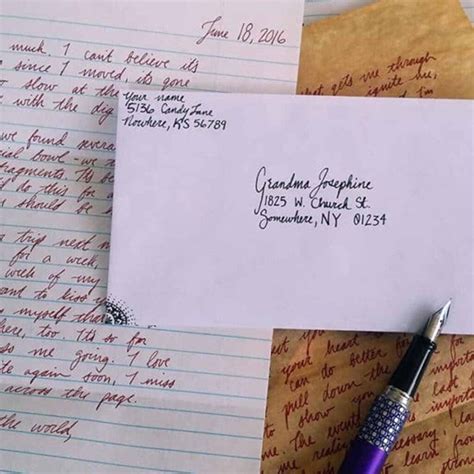 June 18, 2016
much. I can't believe it's
since I moved, it's gone
slow at the
with the dig
we found severa
cial bowl - we
fragments. It's be
do this for a
should be s
trip next m
for a week,
week of my
ant to kiss y
myself tha
here, too. It's so far
me going. I love
te again soon, I miss
across the page.
the world,
Your name
5136 Candy Lane
Nowhere, KS 56789
Grandma Josephine
1825 W. Church St.
Somewhere, NY 01234
that gets me through
ignite me,
I'm
your heart
can do better for im
pull down the
to show you
me, the events importa
me reali necessary
learn from